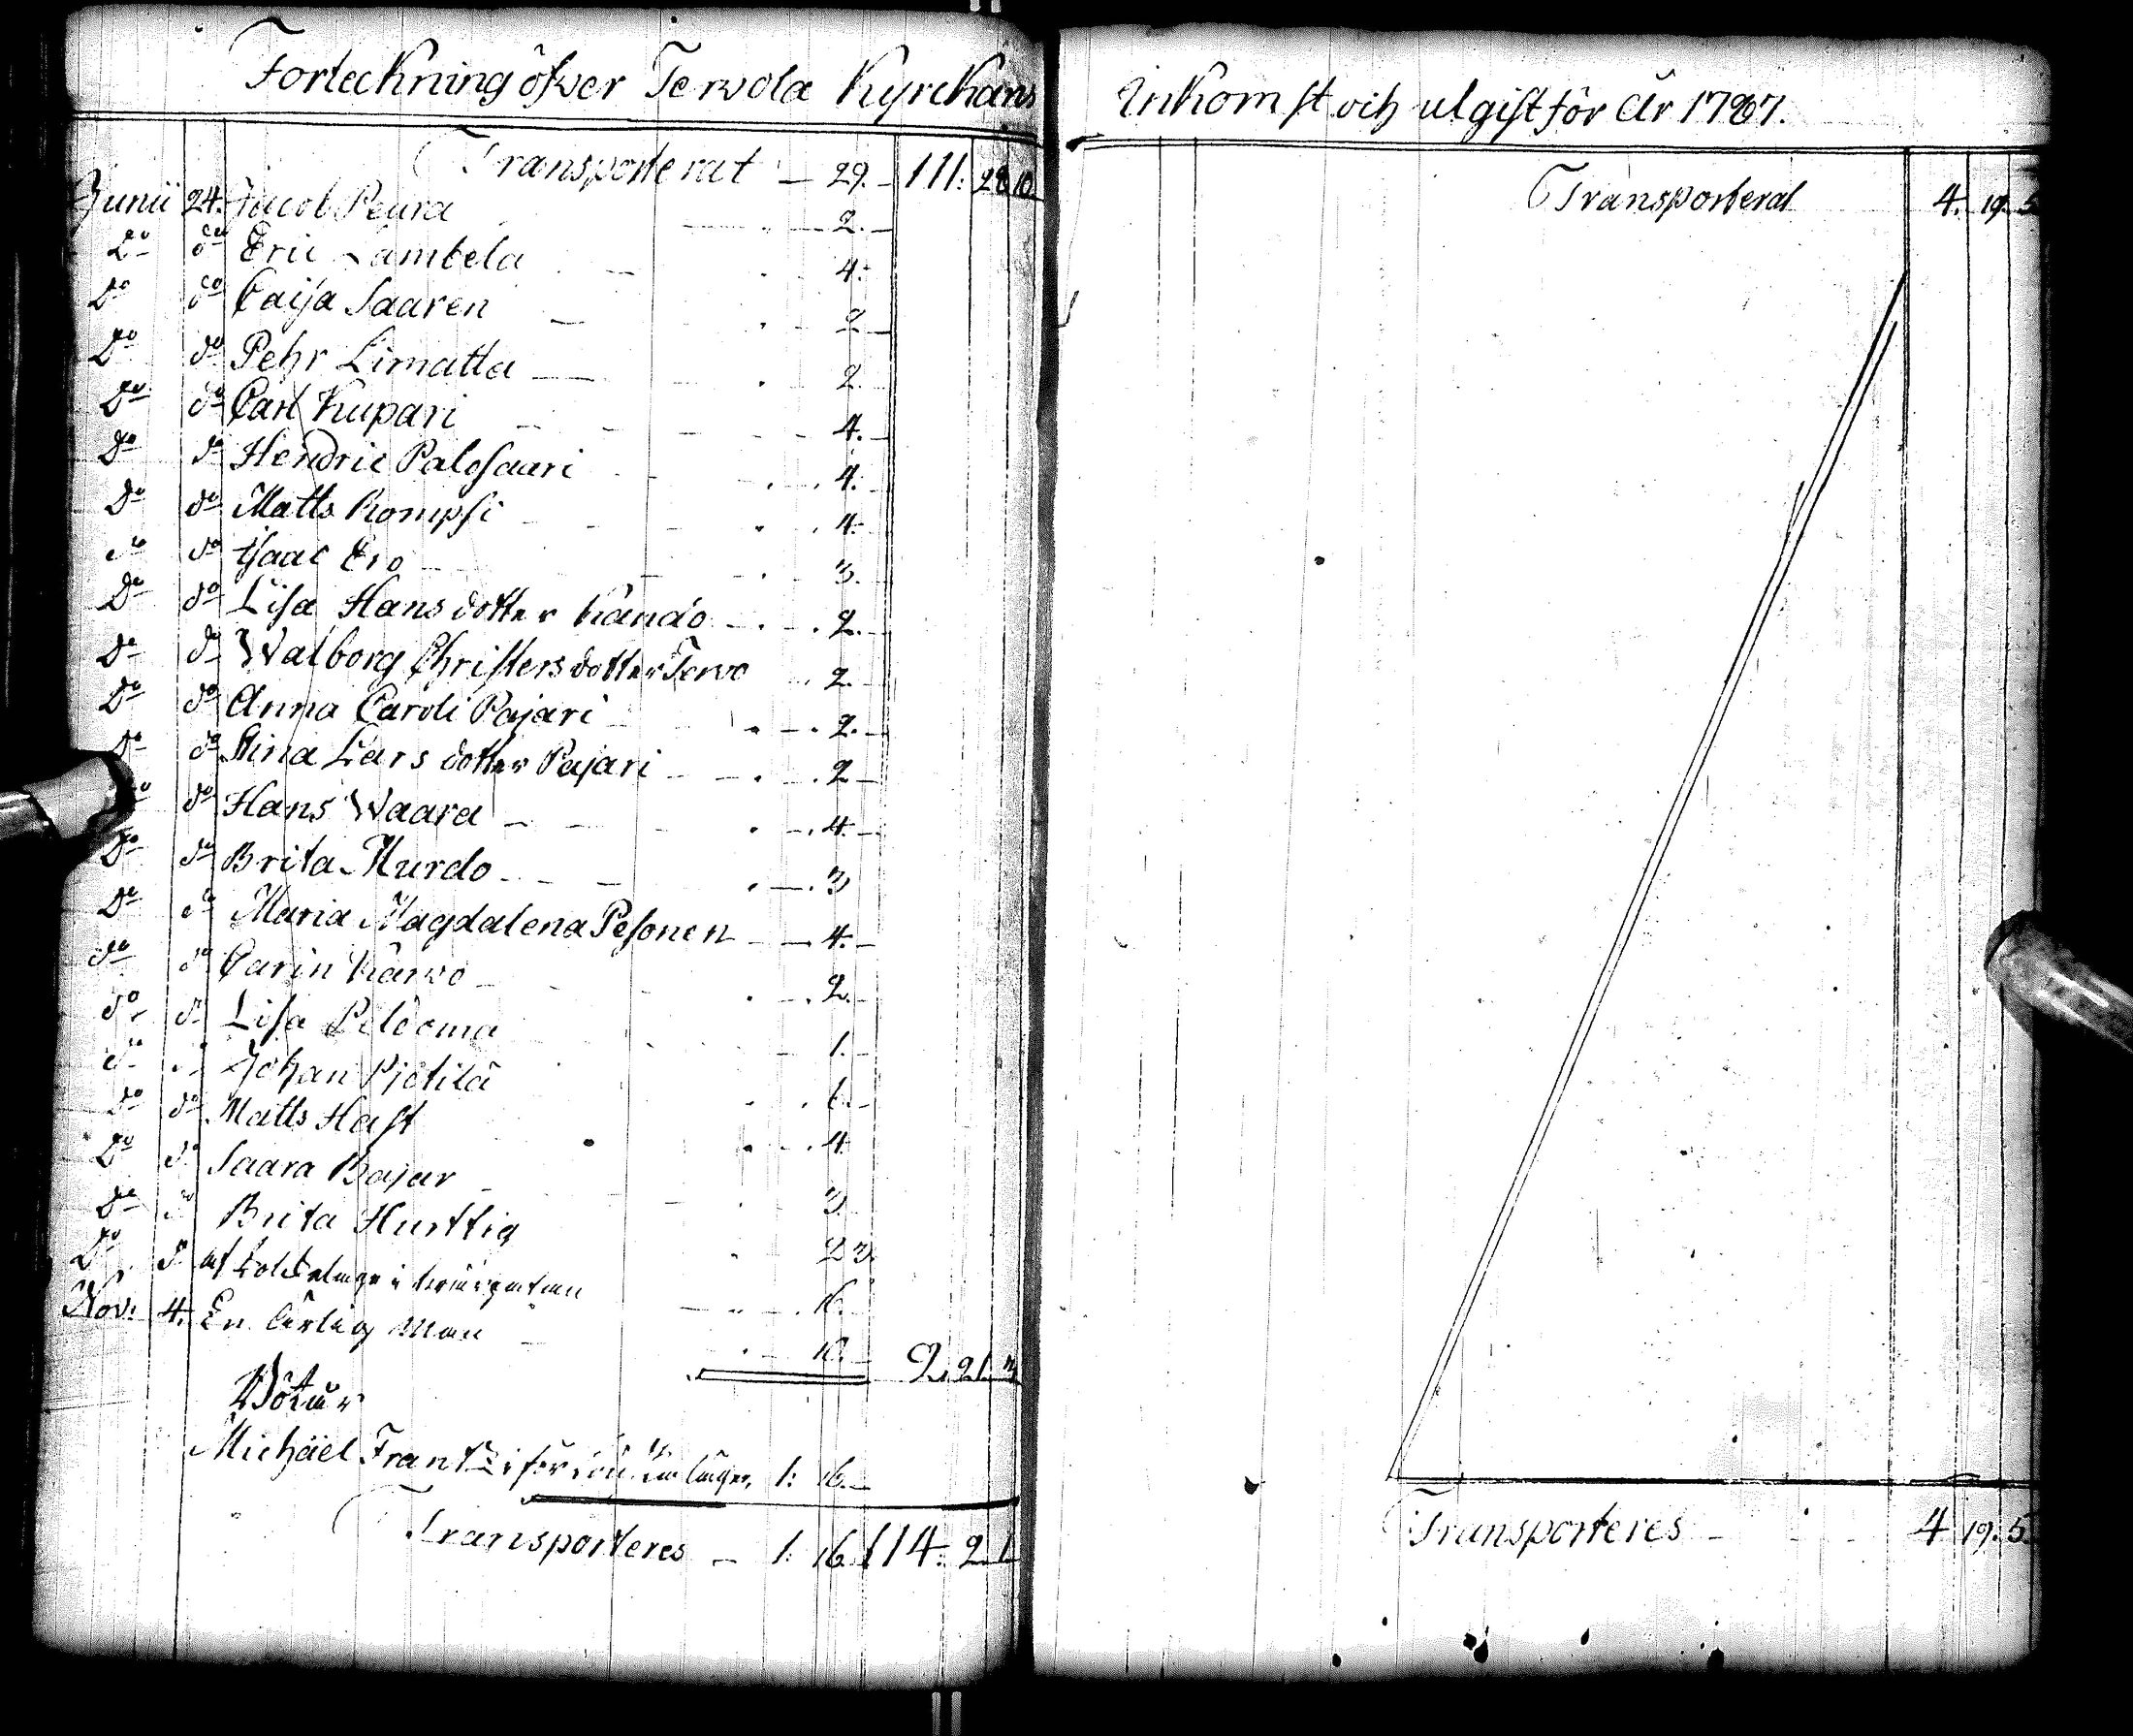 Förteckning öfver Tervola Kyrckans
Transporterat — 29. — 111: 28 10
Junii 24. Jacob Peura 2. —
Do do Eric Lambela 4: —
Do do Caisa Saaren 2 —
Do do Pehr Limatta 2. —
Do do Carl Kupari 4. —
Do do Hendric Palosaari 4. —
Do do Matts Kompsi 4. —
Do do Isaac Ero 3. —
Do do Lisa Hans dotter Kando 2. —
Do do Walborg Christers dotter Tervo 2. —
Do do Anna Caroli Pajari 2. —
Do do Stina Lars dotter Pajari 2 —
Do do Hans Waara 4. —
Do do Brita Murdo 3
Do do Maria Magdalena Pesonen 4. —
Do do Carin Karvo 2. —
Do do Lisa Pilöoma 1. —
Do do Johan Pjötilä
Do do Matts Hast 4
Do do Saara Bajar 3
Do do Brita Hurttig 2 3.
Do do af 16. —
Nov: 4. En ärlig Man 10. — 2. 21. 3
Michäel Frantzi 1: 16. —
Transporteres — 1: 16. 114: 2. 1
Inkomst och utgift för År 1787.
Transporterat 4. 19. 5
Transporteres 4 19. 5.